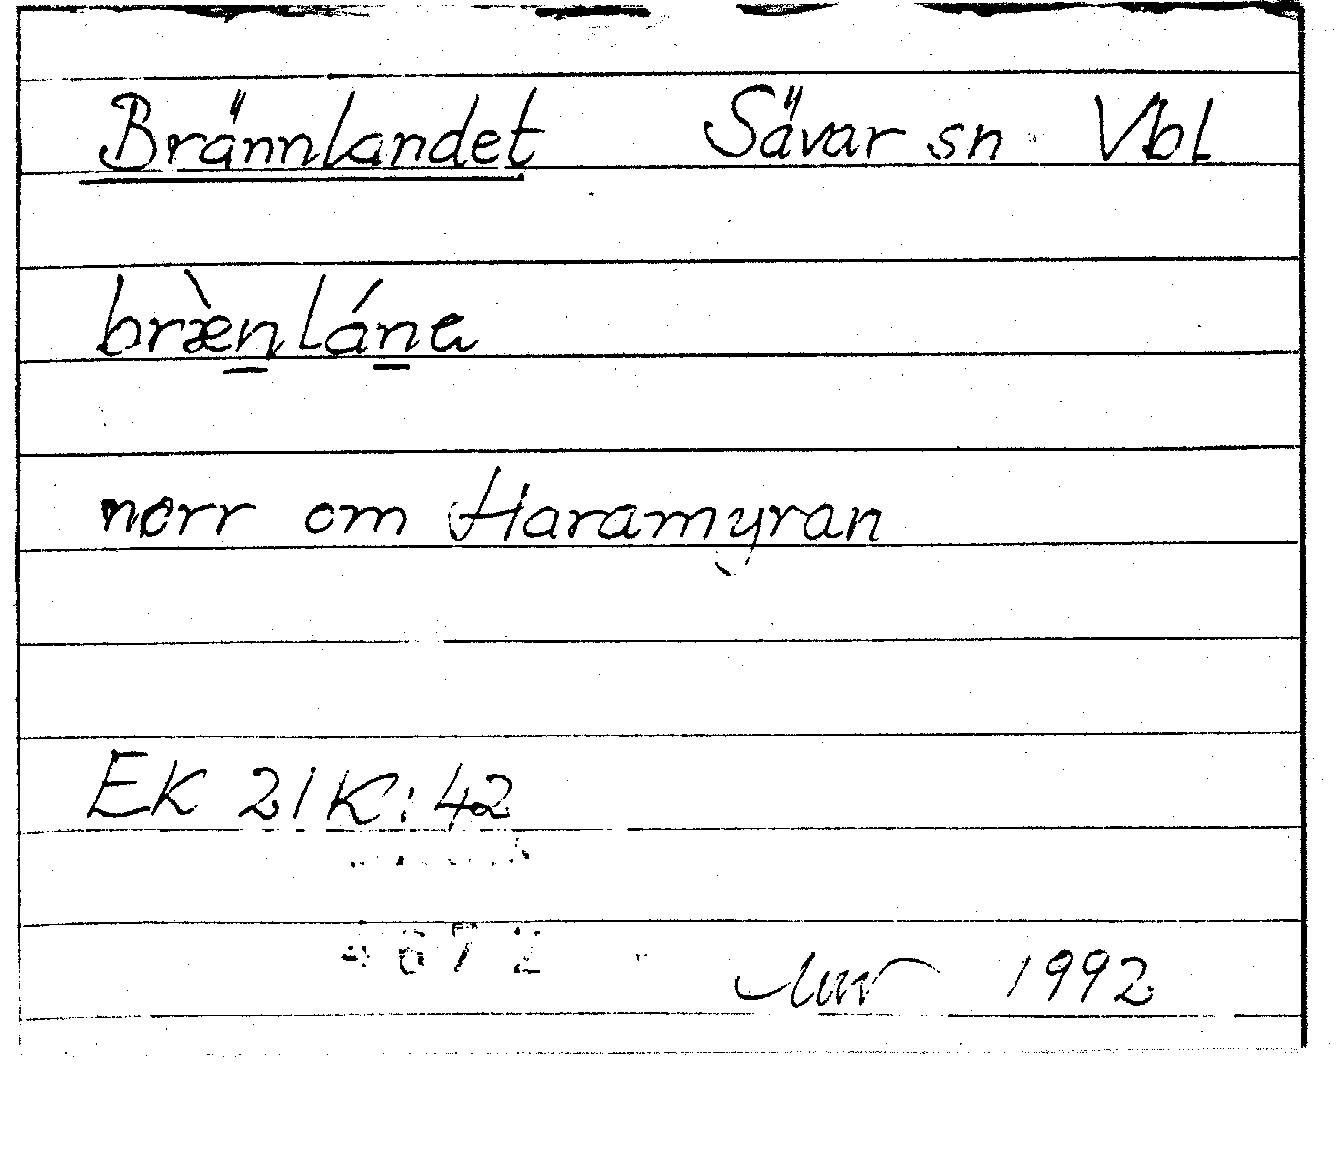 Brännlandet Sävar sn Vbl
bræ̀n̲lán̲a
norr om Haramyran
EK 21K:42
4672
1992